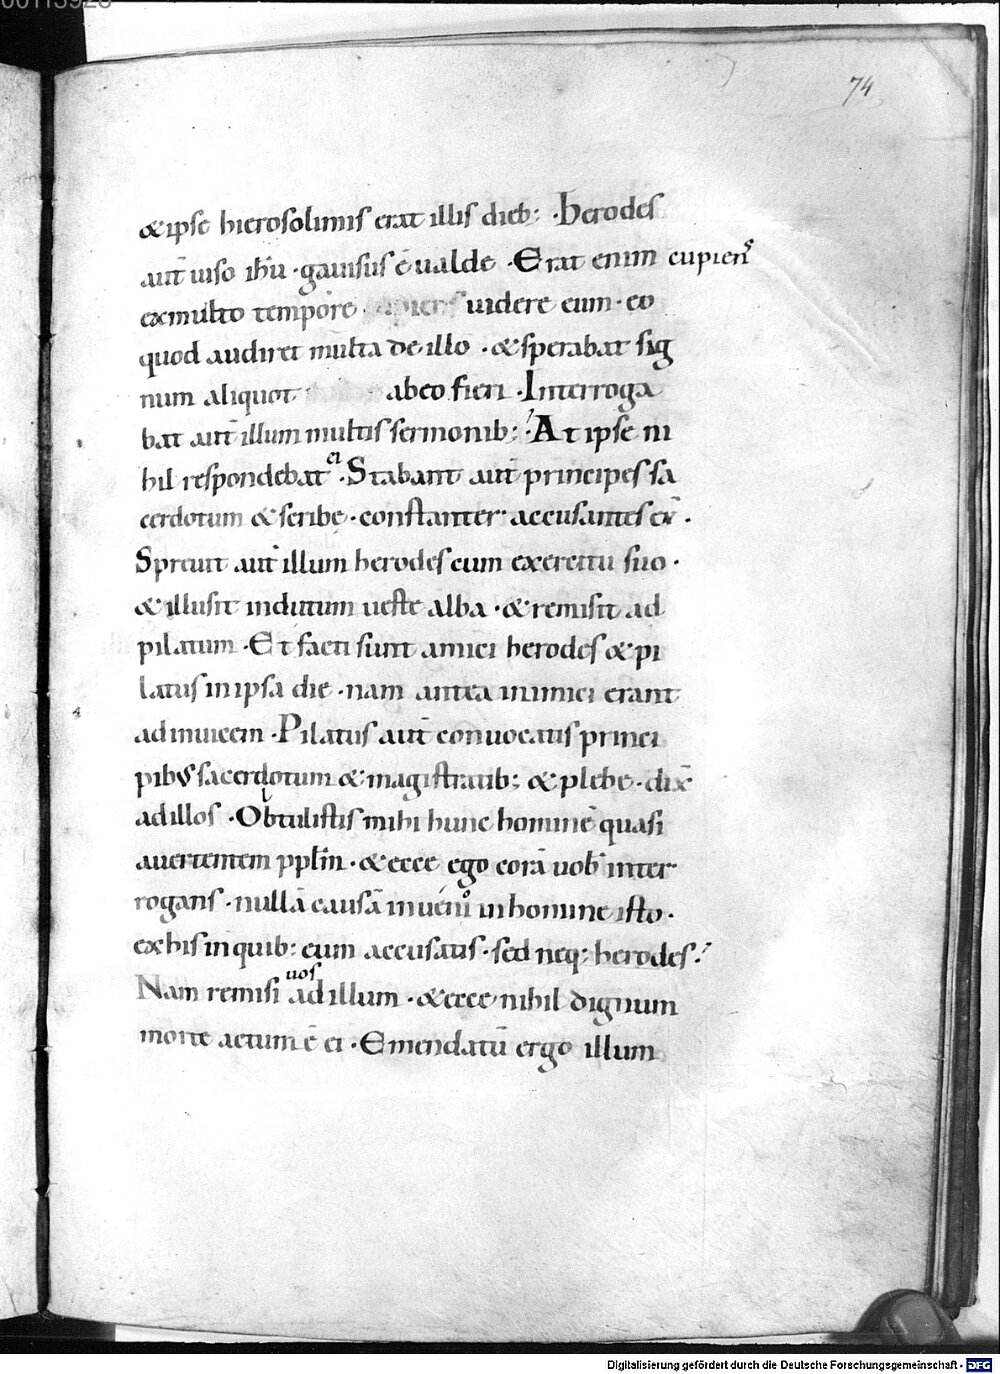 00113928
74
&ipse hierosolimis erat illis dieb; · Herodes
aut̄ uiso ih̄u · gauisus ē ualde · Erat enim cupienˢ
exmulto tempore uidere eum · eo
quod audiret multa de illo · & sperabat sig
num aliquot abeo fieri · Interroga
bat aut̄ illum multis sermonib; · At ipse ni
hil respondebat ei · Stabant aut̄ principes sa
cerdotum & scribe · constanter accusantes eū ·
Spreuit aut̄ illum herodes cum exercitu suo ·
& illusit indutum ueste alba · & remisit ad
pilatum · Et facti sunt amici herodes & pi
latus in ipsa die · nam antea inimici erant
adinuicem · Pilatus aut̄ conuocatis princi
pibus sacerdotum & magistratib; & plebe · dix̄
adillos · Obtulistis mihi hunc hominē quasi
auertentem pplm̄ · & ecce ego corā uob̄ inter
rogans · nullā causā inueni in homine isto ·
exhis inquib; eum accusatis · sed neq; herodes ·
Nam remisi uos ad illum · & ecce nihil dignum
morte actum ē ei · Emendatū ergo illum
Digitalisierung gefördert durch die Deutsche Forschungsgemeinschaft · DFG